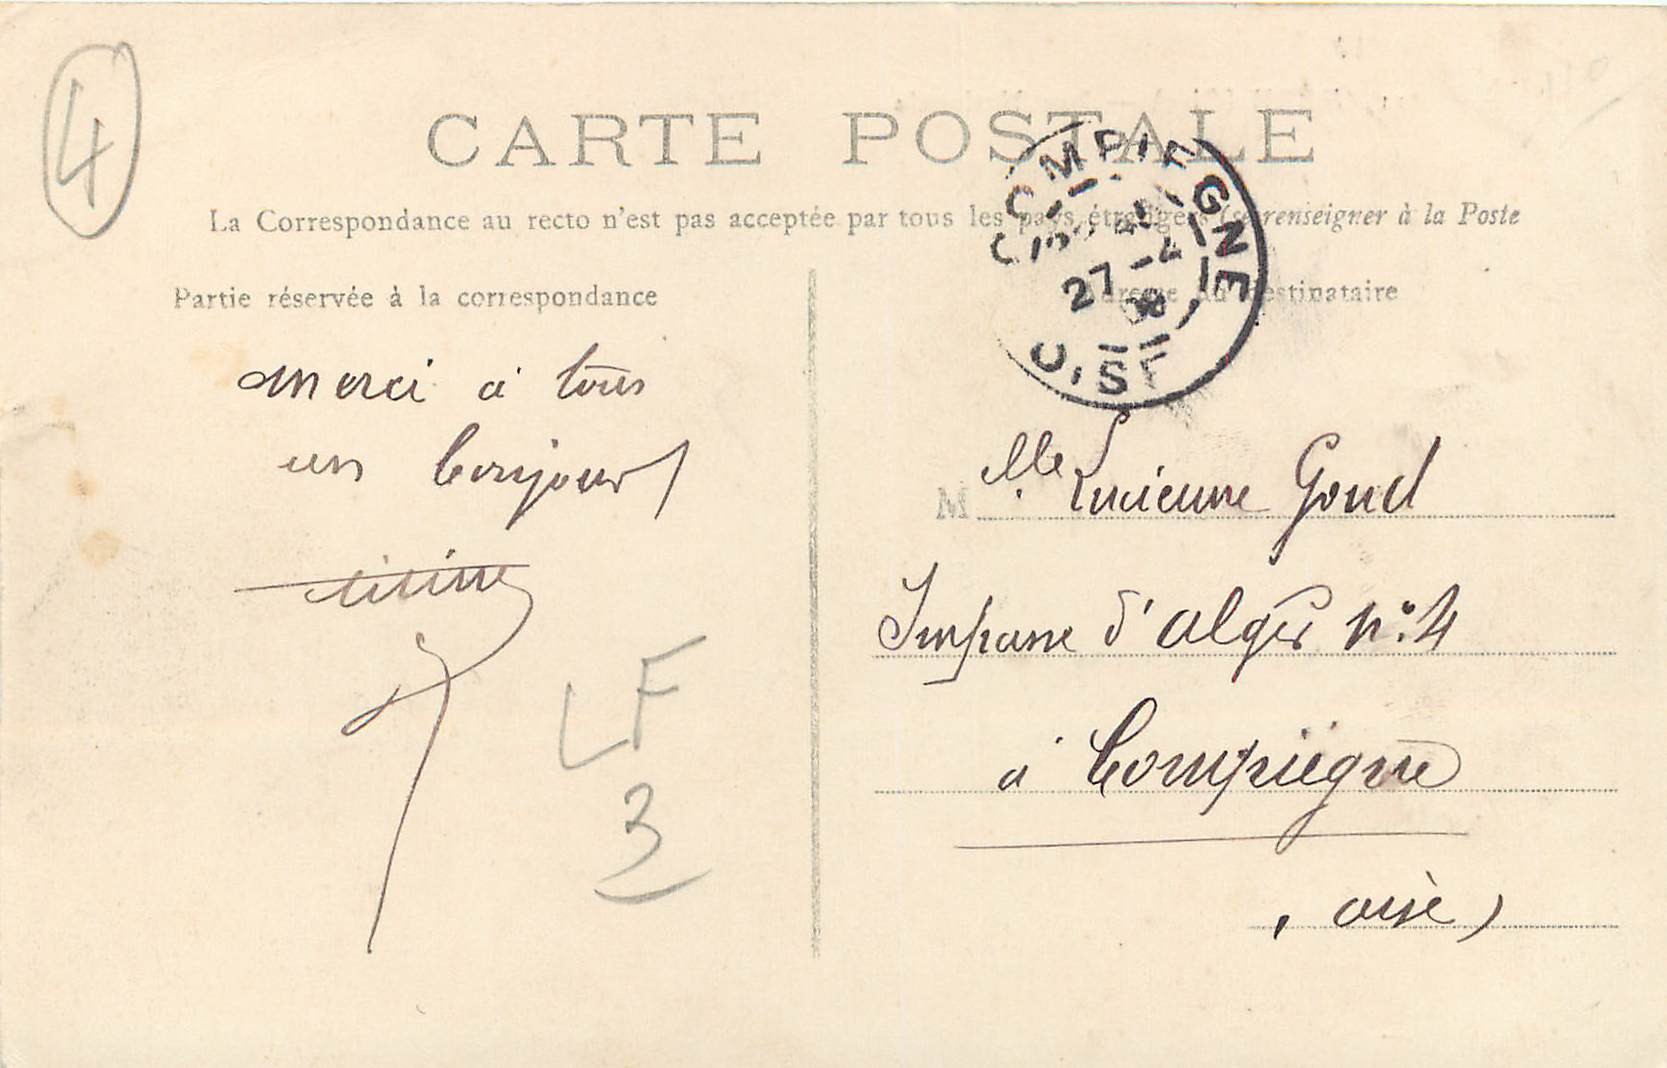 4
CARTE POSTALE
La Correspondance au recto n'est pas acceptée par tous les pays étrangers (se renseigner à la Poste
Partie réservée à la correspondance
Adresse du Destinataire
COMPIEGNE
27 - 4
08
OISE
merci à tous
un bonjour
LF
3
Mlle Lucienne Goud
Impasse d'Alger n°. 4
à Compiègne
(oise)